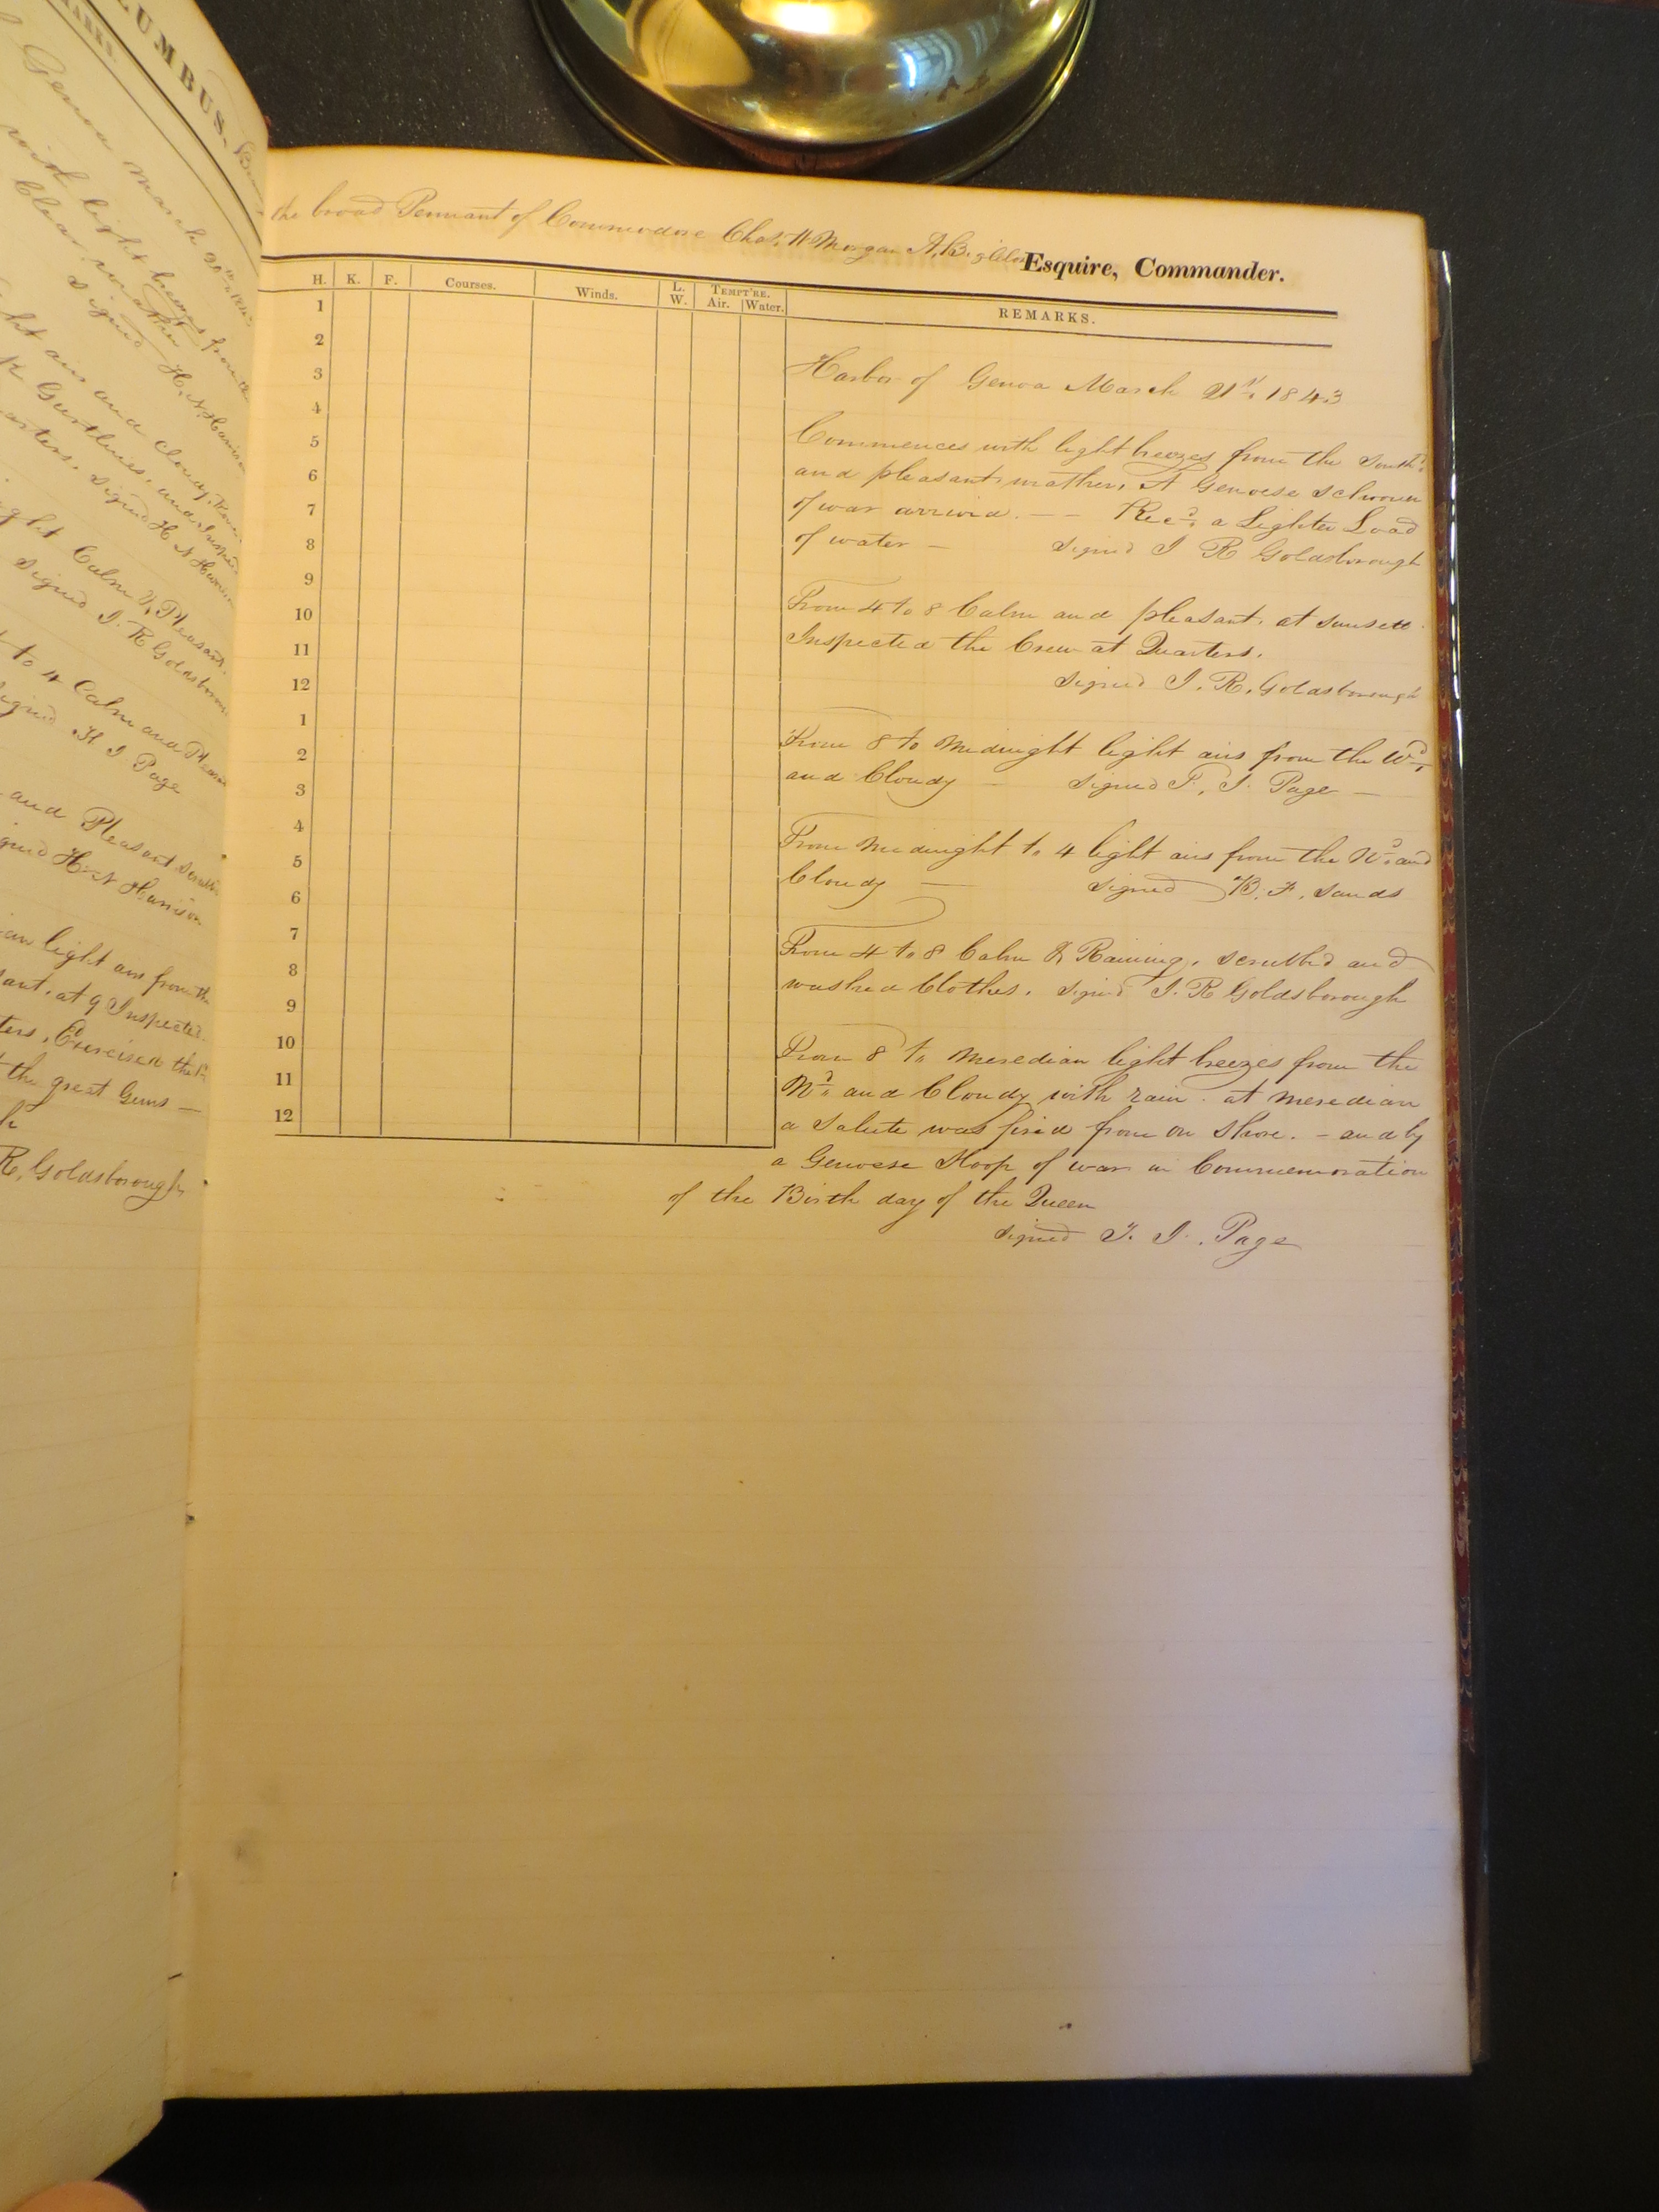 UMBUS,
MARKS.
Genoa March 20th 1843
with light breezes from the
Clear weather
signed H. N. Harrison
light airs and cloudy,
signed H N Harrison
Calm & Pleasant.
signed J. R Goldsborou
to 4 Calm and Pleasa
signed T J Page
and Pleasant
signed H. N Harrison
light airs from the
at 9 Inspected
Exercised the
the great Guns —
R. Goldsborough
the broad Pennant of Commodore Chas. W Morgan A. Bigelow Esquire, Commander.
H. K. F. Courses. Winds. L. W. TEMPT'RE. Air. Water. REMARKS.
1
2
3
4
5
6
7
8
9
10
11
12
1
2
3
4
5
6
7
8
9
10
11
12
Harbor of Genoa March 21st 1843
Commences with light breezes from the South'd
and pleasant weather. A Genoese Schoon
of war arrived. — — Rec'd a Lighter Load
of water — signed J R Goldsborough
From 4 to 8 Calm and pleasant. at sunsett
Inspected the Crew at Quarters.
signed J. R. Goldsborough
From 8 to Midnight light airs from the Wd
and Cloudy — signed T. J. Page —
From Midnight to 4 light airs from the Nd and
Cloudy — signed B. F. Sands
From 4 to 8 Calm & Raining. scrubb'd and
washed Clothes. signed J. R Goldsborough
From 8 to Meredian light breezes from the
Nd and Cloudy with rain. at Meredian
a Salute was fired from on Shore. — and by
a Genoese Sloop of war in Commemoration
of the Birth day of the Queen
signed T. J. Page